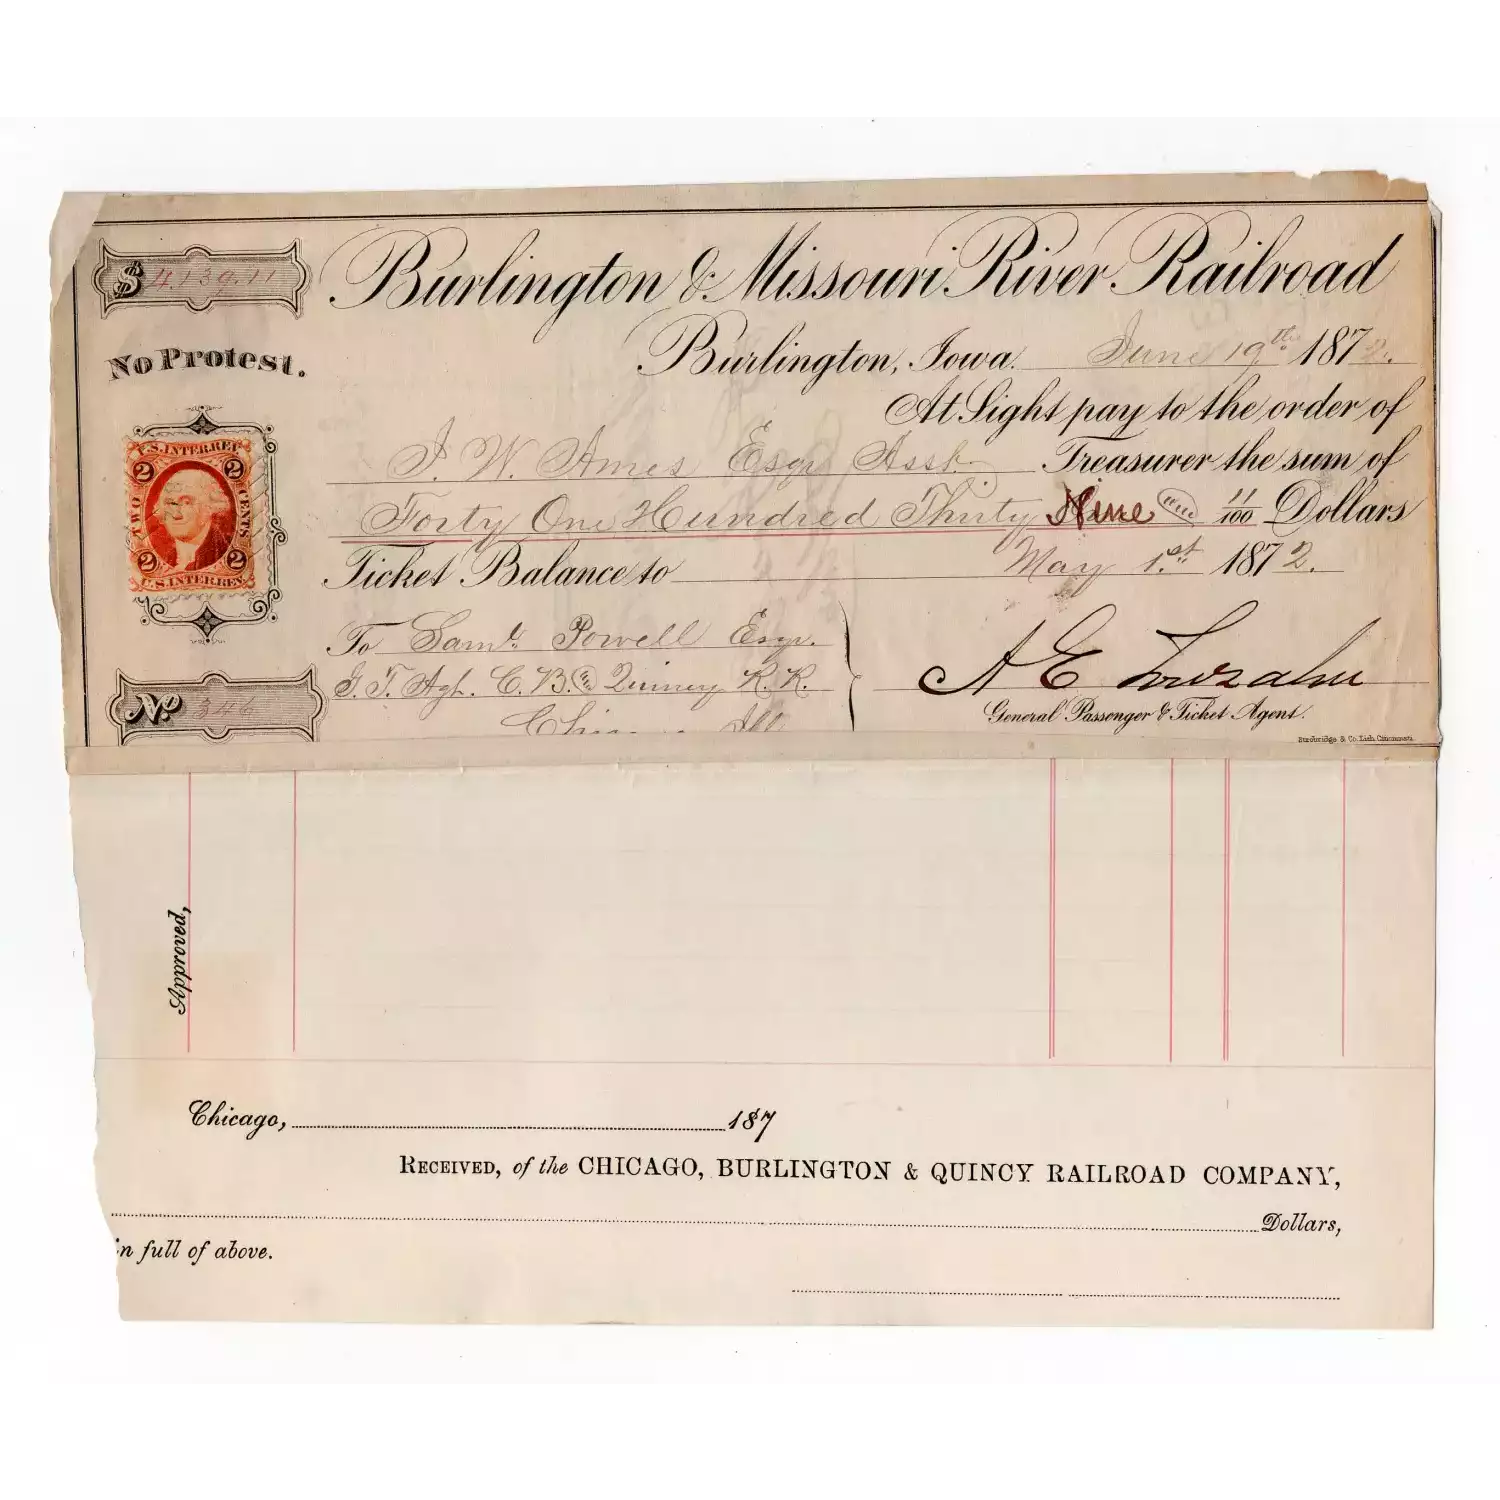 Burlington & Missouri River Railroad
$ 4,139.11
Burlington, Iowa. June 19th 1872.
No Protest.
At Sight pay to the order of
J. W. Ames Esqr Asst. Treasurer the sum of
Forty One Hundred Thirty Nine and 11/100 Dollars
Ticket Balance to May 1.st 1872.
U.S. INTER. REV.
2 2
TWO CENTS
2 2
U.S. INTER. REV.
To Saml. Powell Esqr.
G. T. Agt. C. B. & Quincy R. R.
Ill
A E
General Passenger & Ticket Agent.
No 346
Strobridge & Co. Lith. Cincinnati.
Approved,
Chicago, 187
RECEIVED, of the CHICAGO, BURLINGTON & QUINCY RAILROAD COMPANY,
Dollars,
in full of above.